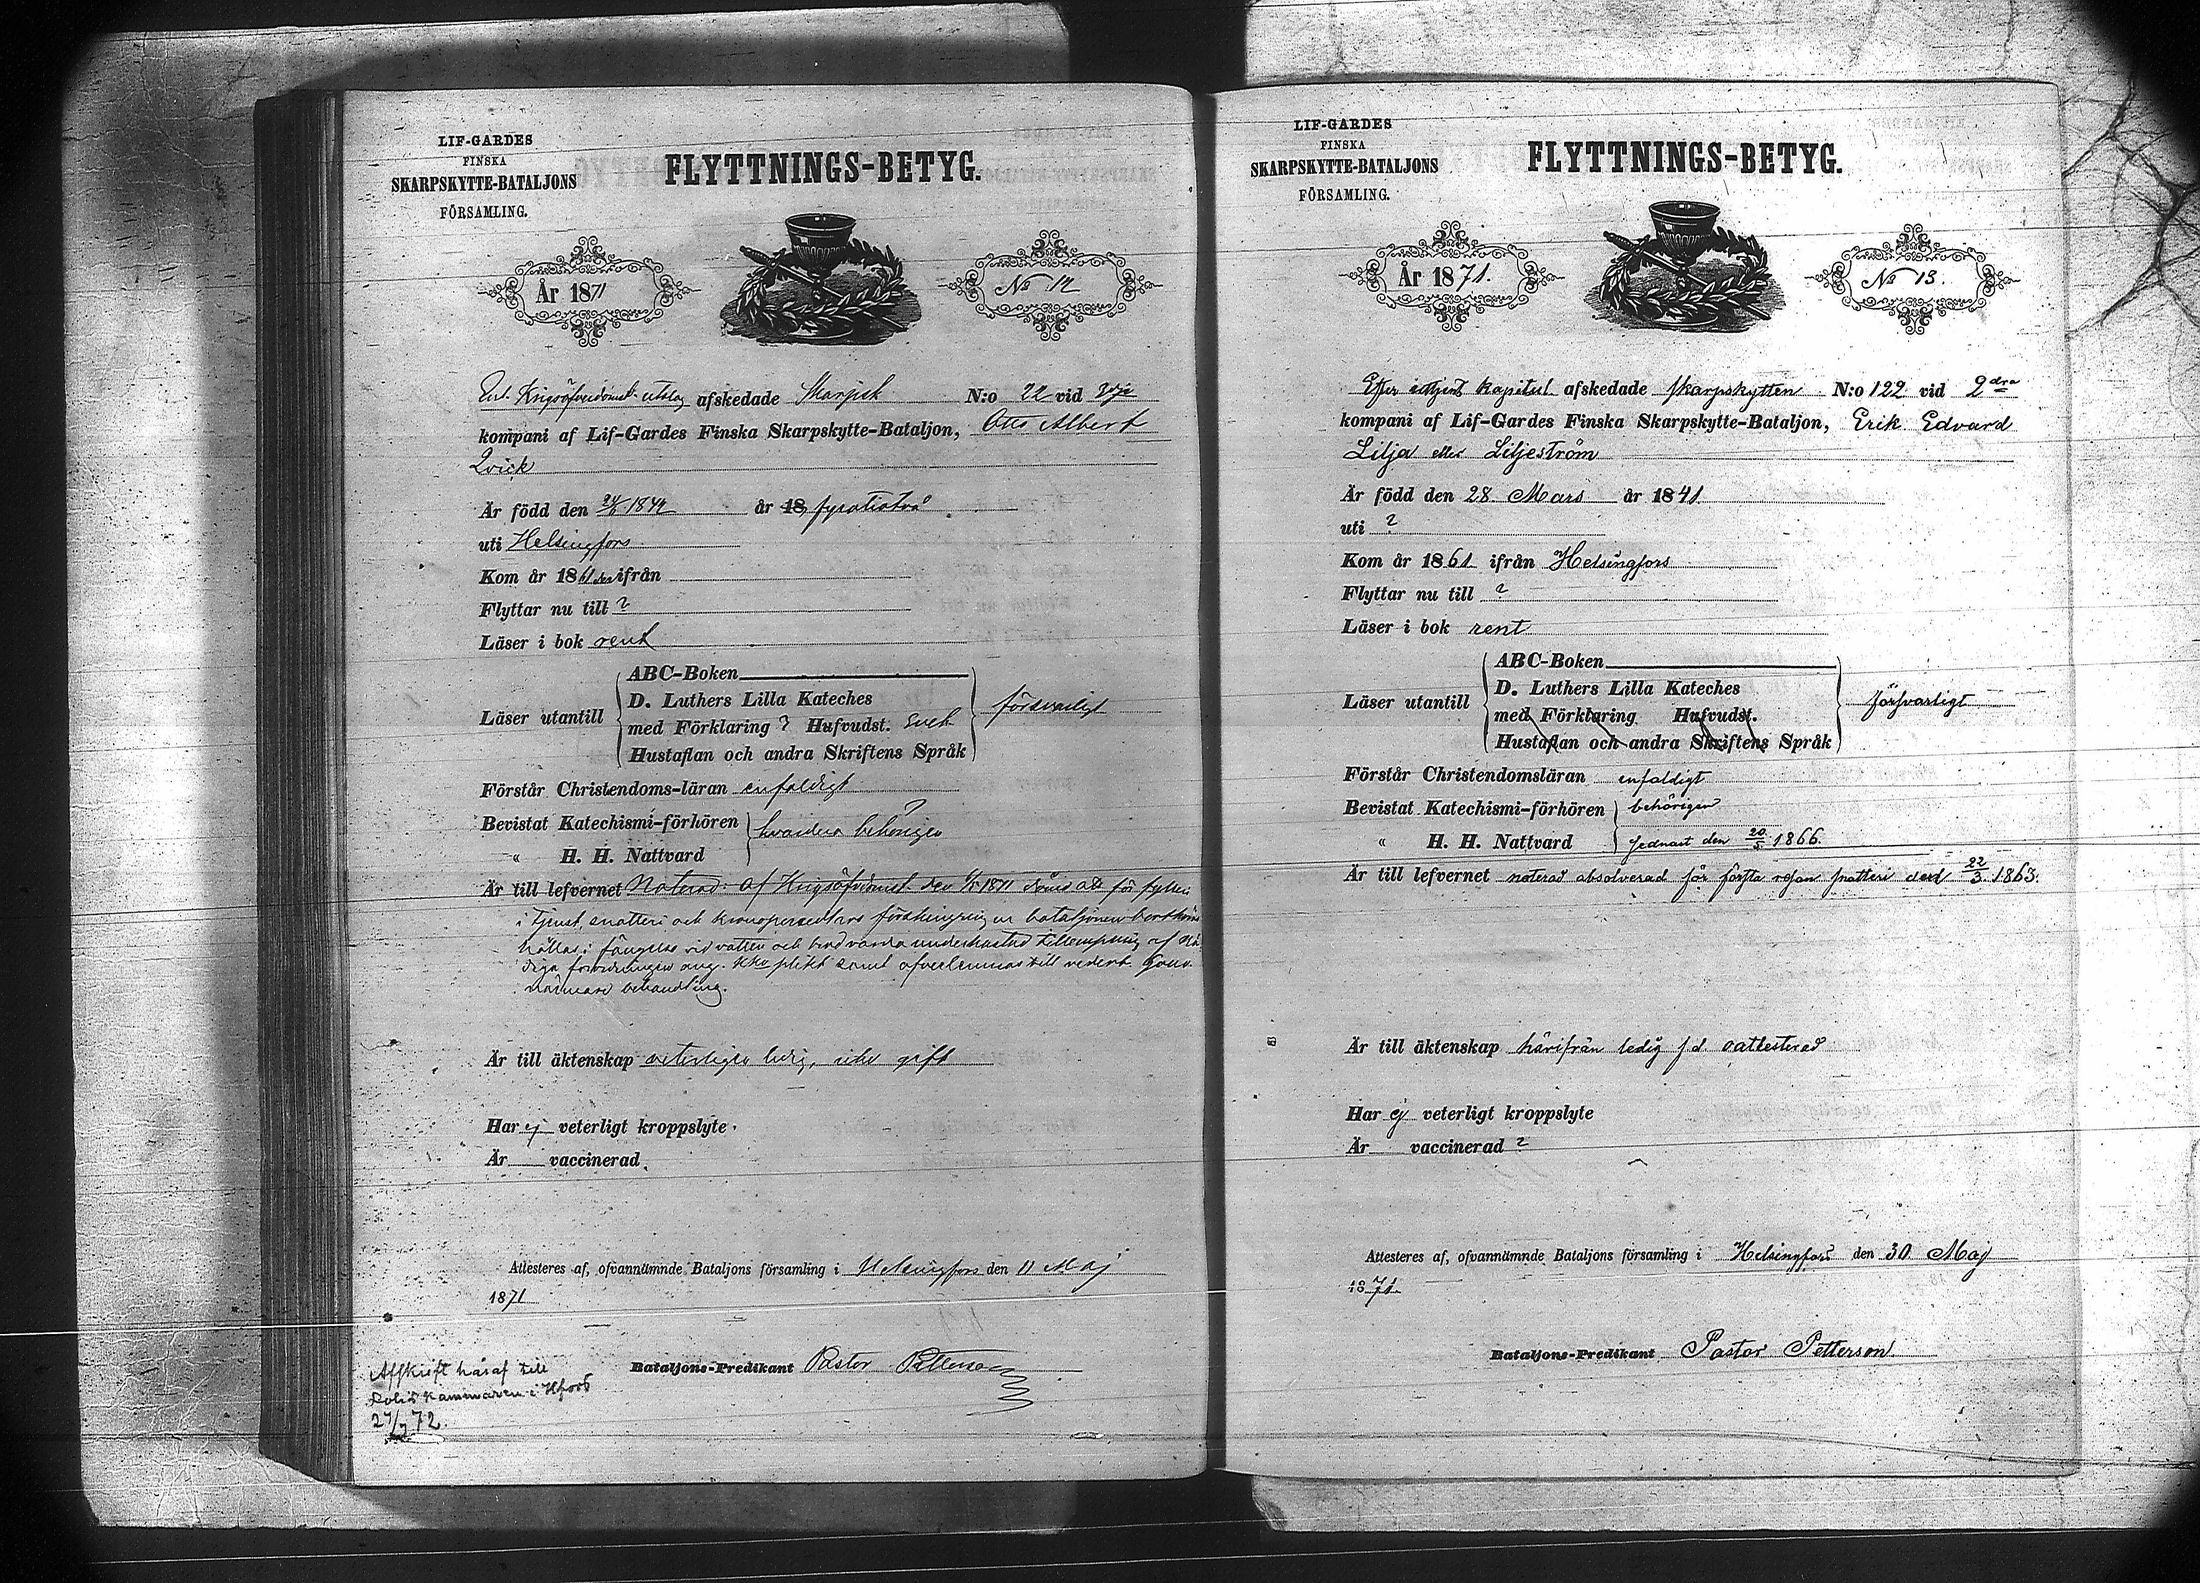 LIF-GARDES
FINSKA
SKARPSKYTTE-BATALJONS
FÖRSAMLING.
FLYTTNINGS-BETYG.
År 1871
No 12
afskedade Skarpsk N:o 22 vid 3dje
kompani af Lif-Gardes Finska Skarpskytte-Bataljon, Otto Albert
Qvick
År född den 1842 år 18 fyratiotvå
uti Helsingfors
Kom år 1861 ifrån
Flyttar nu till ?
Läser i bok rent
ABC-Boken
D. Luthers Lilla Kateches
Läser utantill försvarligt
med Förklaring ? Hufvudst.
Hustaflan och andra Skriftens Språk
Förstår Christendoms-läran enfaldigt
Bevistat Katechismi-förhören behörigen
" H. H. Nattvard
Är till lefvernet Noterad: af Krigsöfverdomst. den 1871 dömd att för fylleri
i tjenst, snatteri och kronopersedlars förskingring ur bataljonen
hållas i fängelse vid vatten och bröd
plikt samt till
behandling.
Är till äktenskap veterligen ledig, icke gift
Har ej veterligt kroppslyte.
Är vaccinerad.
Attesteras af, ofvannämnde Bataljons församling i Helsingfors den 11 Maj
1871
Bataljons-Predikant Pastor Petterson
Afskrift häraf till
Poliskammaren i Hfors
27/7 72.
LIF-GARDES
FINSKA
SKARPSKYTTE-BATALJONS
FÖRSAMLING.
FLYTTNINGS-BETYG.
År 1871.
No 13.
Efter kapitul afskedade skarpskytten N:o 122 vid 2dra
kompani af Lif-Gardes Finska Skarpskytte-Bataljon, Erik Edvard
Lilja eller Liljeström
Är född den 28 Mars år 1841
uti ?
Kom år 1861 ifrån Helsingfors
Flyttar nu till ?
Läser i bok rent
ABC-Boken
D. Luthers Lilla Kateches
Läser utantill försvarligt
med Förklaring Hufvudst.
Hustaflan och andra Skriftens Språk
Förstår Christendomsläran enfaldigt
Bevistat Katechismi-förhören behörigen
" H. H. Nattvard sednast den 20/5 1866.
Är till lefvernet noterad absolverad för första resan snatteri den 22/3 1863.
Är till äktenskap härifrån ledig oattesterad
Har ej veterligt kroppslyte
Är vaccinerad ?
Attesteres af, ofvannämnde Bataljons församling i Helsingfors den 30 Maj
1871.
Bataljons-Predikant Pastor Petterson